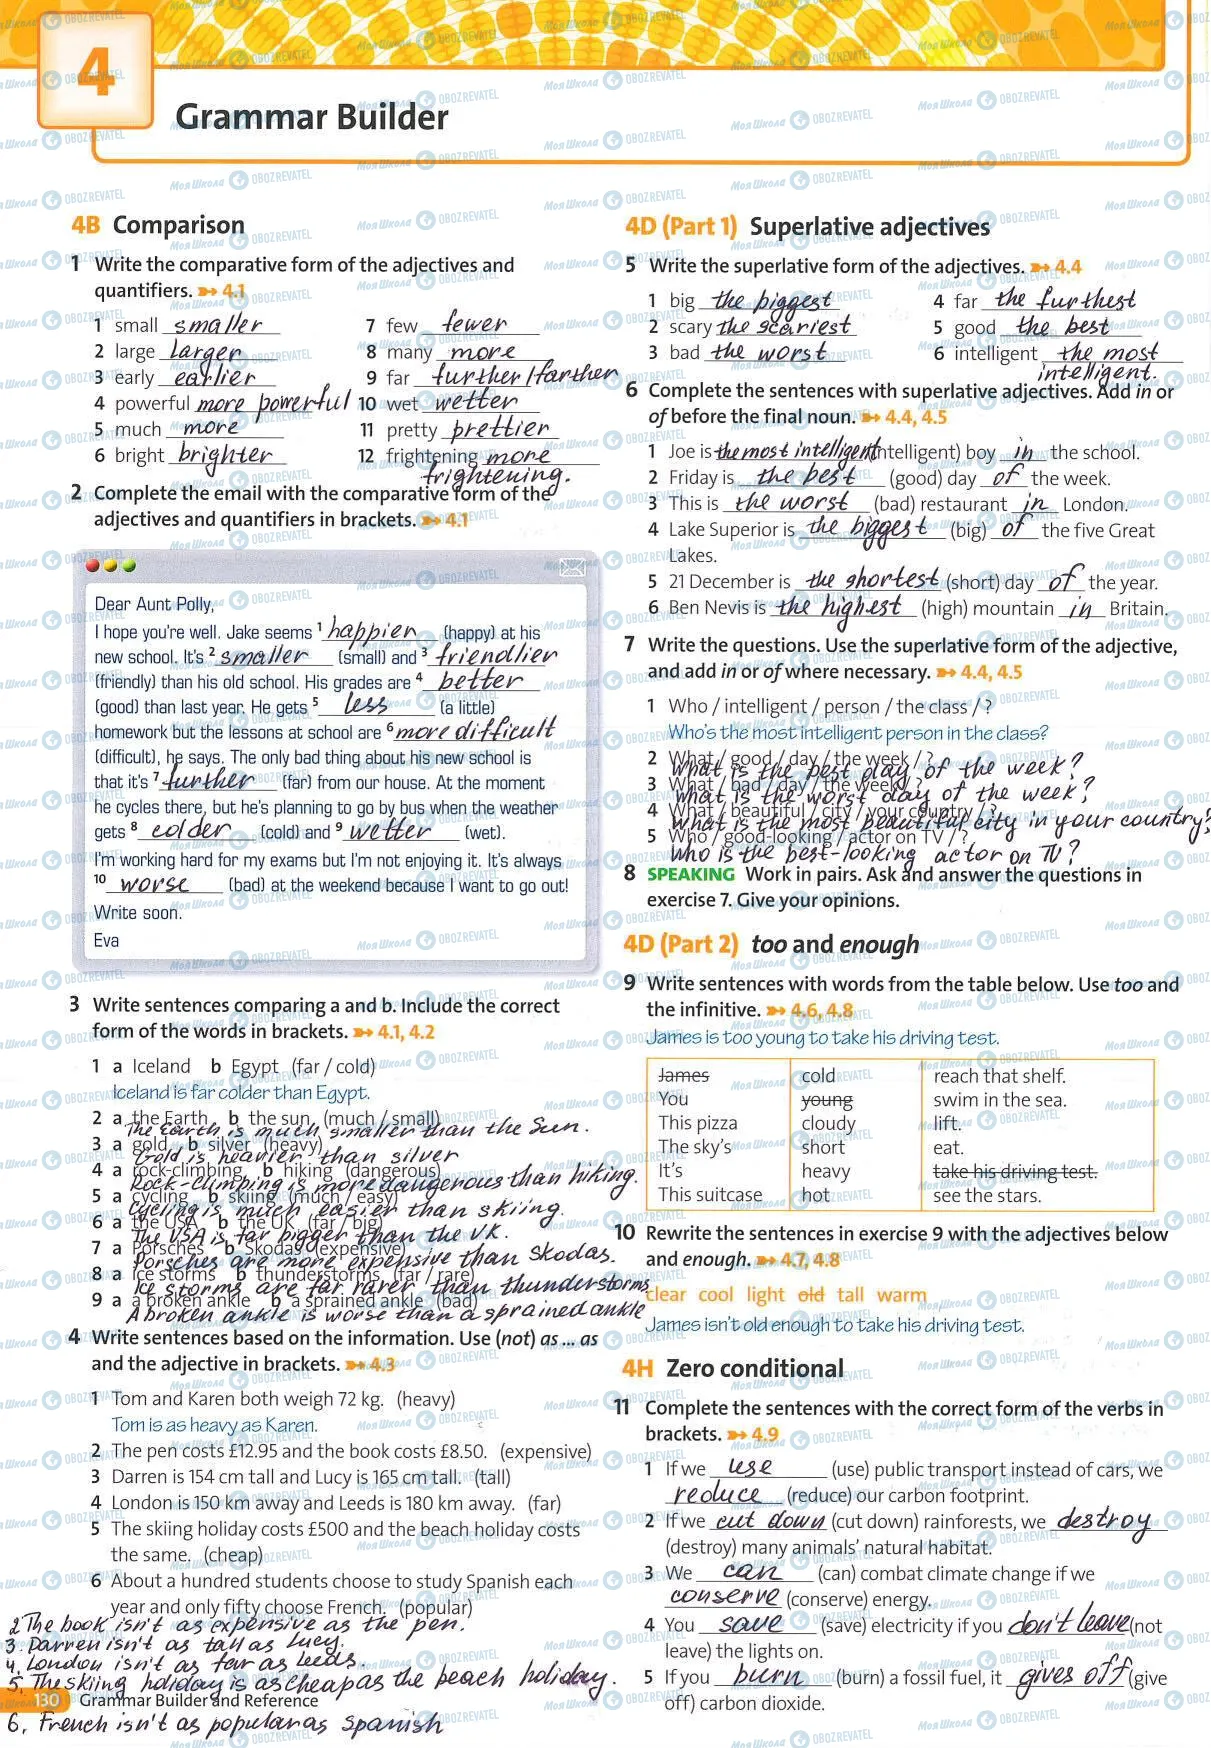 4
Grammar Builder
4B Comparison
1 Write the comparative form of the adjectives and
quantifiers. 4.1
1 small smaller
2 large larger
3 early earlier
4 powerful more powerful
5 much more
6 bright brighter
7 few fewer
8 many more
9 far further/farther
10 wet wetter
11 pretty prettier
12 frightening more
frightening.
2 Complete the email with the comparative form of the
adjectives and quantifiers in brackets. 4.1
Dear Aunt Polly,
I hope you're well. Jake seems 1 happier (happy) at his
new school. It's 2 smaller (small) and 3 friendlier
(friendly) than his old school. His grades are 4 better
(good) than last year. He gets 5 less (a little)
homework but the lessons at school are 6 more difficult
(difficult), he says. The only bad thing about his new school is
that it's 7 further (far) from our house. At the moment
he cycles there, but he's planning to go by bus when the weather
gets 8 colder (cold) and 9 wetter (wet).
I'm working hard for my exams but I'm not enjoying it. It's always
10 worse (bad) at the weekend because I want to go out!
Write soon.
Eva
3 Write sentences comparing a and b. Include the correct
form of the words in brackets. 4.1, 4.2
1 a Iceland b Egypt (far / cold)
Iceland is far colder than Egypt.
2 a the Earth b the sun (much / small)
The Earth is much smaller than the Sun.
3 a gold b silver (heavy)
Gold is heavier than silver
4 a rock-climbing b hiking (dangerous)
Rock-climping is more dangenous than hiking.
5 a cycling b skiing (much / easy)
Cycling is much easier than skiing.
6 a the USA b the UK (far / big)
The USA is far bigger than the UK.
7 a Porsches b Skodas (expensive)
Porsches are more expensive than Skodas.
8 a ice storms b thunderstorms (far / rare)
Ice storms are far rarer than thunderstorms
9 a a broken ankle b a sprained ankle (bad)
A broken ankle is worse than a sprained ankle
4 Write sentences based on the information. Use (not) as ... as
and the adjective in brackets. 4.3
1 Tom and Karen both weigh 72 kg. (heavy)
Tom is as heavy as Karen.
2 The pen costs £12.95 and the book costs £8.50. (expensive)
3 Darren is 154 cm tall and Lucy is 165 cm tall. (tall)
4 London is 150 km away and Leeds is 180 km away. (far)
5 The skiing holiday costs £500 and the beach holiday costs
the same. (cheap)
6 About a hundred students choose to study Spanish each
year and only fifty choose French. (popular)
2 The book isn't as expensive as the pen.
3. Darren isn't as tall as Lucy.
4. London isn't as far as Leeds.
5. The skiing holiday is as cheap as the beach holiday.
130 Grammar Builder and Reference
6. French isn't as popular as Spanish
4D (Part 1) Superlative adjectives
5 Write the superlative form of the adjectives. 4.4
1 big the biggest
2 scary the scariest
3 bad the worst
4 far the furthest
5 good the best
6 intelligent the most
intelligent.
6 Complete the sentences with superlative adjectives. Add in or
of before the final noun. 4.4, 4.5
1 Joe is the most intelligent (intelligent) boy in the school.
2 Friday is the best (good) day of the week.
3 This is the worst (bad) restaurant in London.
4 Lake Superior is the biggest (big) of the five Great
Lakes.
5 21 December is the shortest (short) day of the year.
6 Ben Nevis is the highest (high) mountain in Britain.
7 Write the questions. Use the superlative form of the adjective,
and add in or of where necessary. 4.4, 4.5
1 Who / intelligent / person / the class / ?
Who's the most intelligent person in the class?
2 What / good / day / the week / ?
What is the best day of the week?
3 What / bad / day / the week / ?
What is the worst day of the week?
4 What / beautiful / city / your country / ?
What is the most beautiful city in your country?
5 Who / good-looking / actor on TV / ?
Who is the best-looking actor on TV?
8 SPEAKING Work in pairs. Ask and answer the questions in
exercise 7. Give your opinions.
4D (Part 2) too and enough
9 Write sentences with words from the table below. Use too and
the infinitive. 4.6, 4.8
James is too young to take his driving test.
James cold reach that shelf.
You young swim in the sea.
This pizza cloudy lift.
The sky's short eat.
It's heavy take his driving test.
This suitcase hot see the stars.
10 Rewrite the sentences in exercise 9 with the adjectives below
and enough. 4.7, 4.8
clear cool light old tall warm
James isn't old enough to take his driving test.
4H Zero conditional
11 Complete the sentences with the correct form of the verbs in
brackets. 4.9
1 If we use (use) public transport instead of cars, we
reduce (reduce) our carbon footprint.
2 If we cut down (cut down) rainforests, we destroy
(destroy) many animals' natural habitat.
3 We can (can) combat climate change if we
conserve (conserve) energy.
4 You save (save) electricity if you don't leave (not
leave) the lights on.
5 If you burn (burn) a fossil fuel, it gives off (give
off) carbon dioxide.
Моя Школа OBOZREVATEL